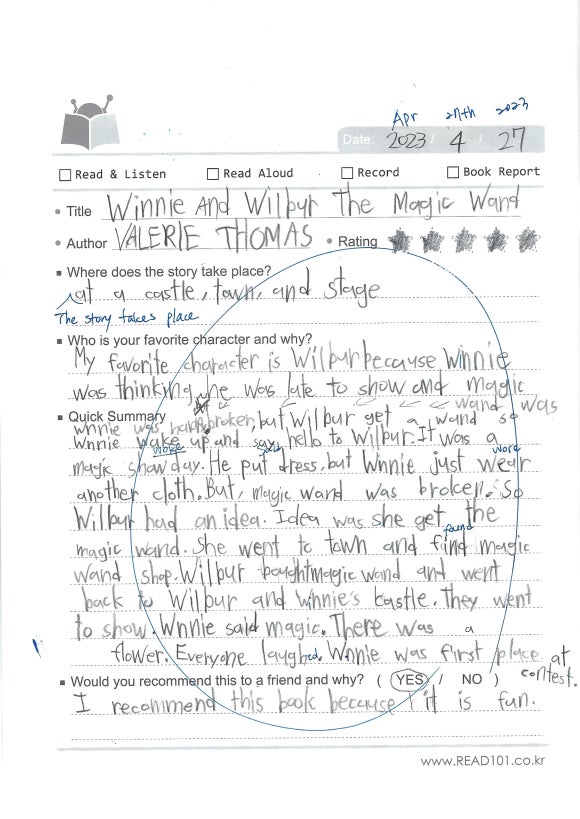 Apr 27th 2023
Date: 2023 / 4 / 27
Read & Listen Read Aloud Record Book Report
Title Winnie And Wilbur The Magic Wand
Author VALERIE THOMAS Rating
Where does the story take place?
at a castle, town, and stage
The story takes place
Who is your favorite character and why?
My favorite character is Wilbur because Winnie
was thinking he was late to show and magic
wand was
Quick Summary Wnnie was happy broken, but Wilbur get a wand so
Wnnie wake up and say hello to Wilbur. It was a
woke said wore
magic show day. He put dress, but Wnnie just wear
another cloth. But, magic wand was broken. So
Wilbur had an idea. Idea was she get the
found
magic wand. She went to town and find magic
wand shop. Wilbur bought magic wand and went
back to Wilbur and Winnie's castle. They went
to show. Wnnie said magic. There was a
flower. Everyone laughed. Wnnie was first place at
contest.
Would you recommend this to a friend and why? ( YES / NO )
I recommend this book because it is fun.
www.READ101.co.kr